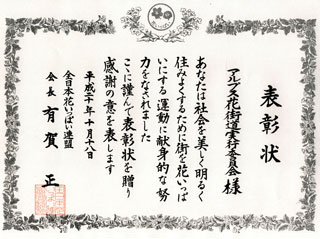 表彰状
アルプス花街道実行委員会様
あなたは社会を美しく明るく
住みよくするために街を花いっぱ
いにする運動に献身的な努
力をなされました
ここに謹んで表彰状を贈り
感謝の意を表します
平成二十年十月十八日
全日本花いっぱい連盟
会長 有賀 正